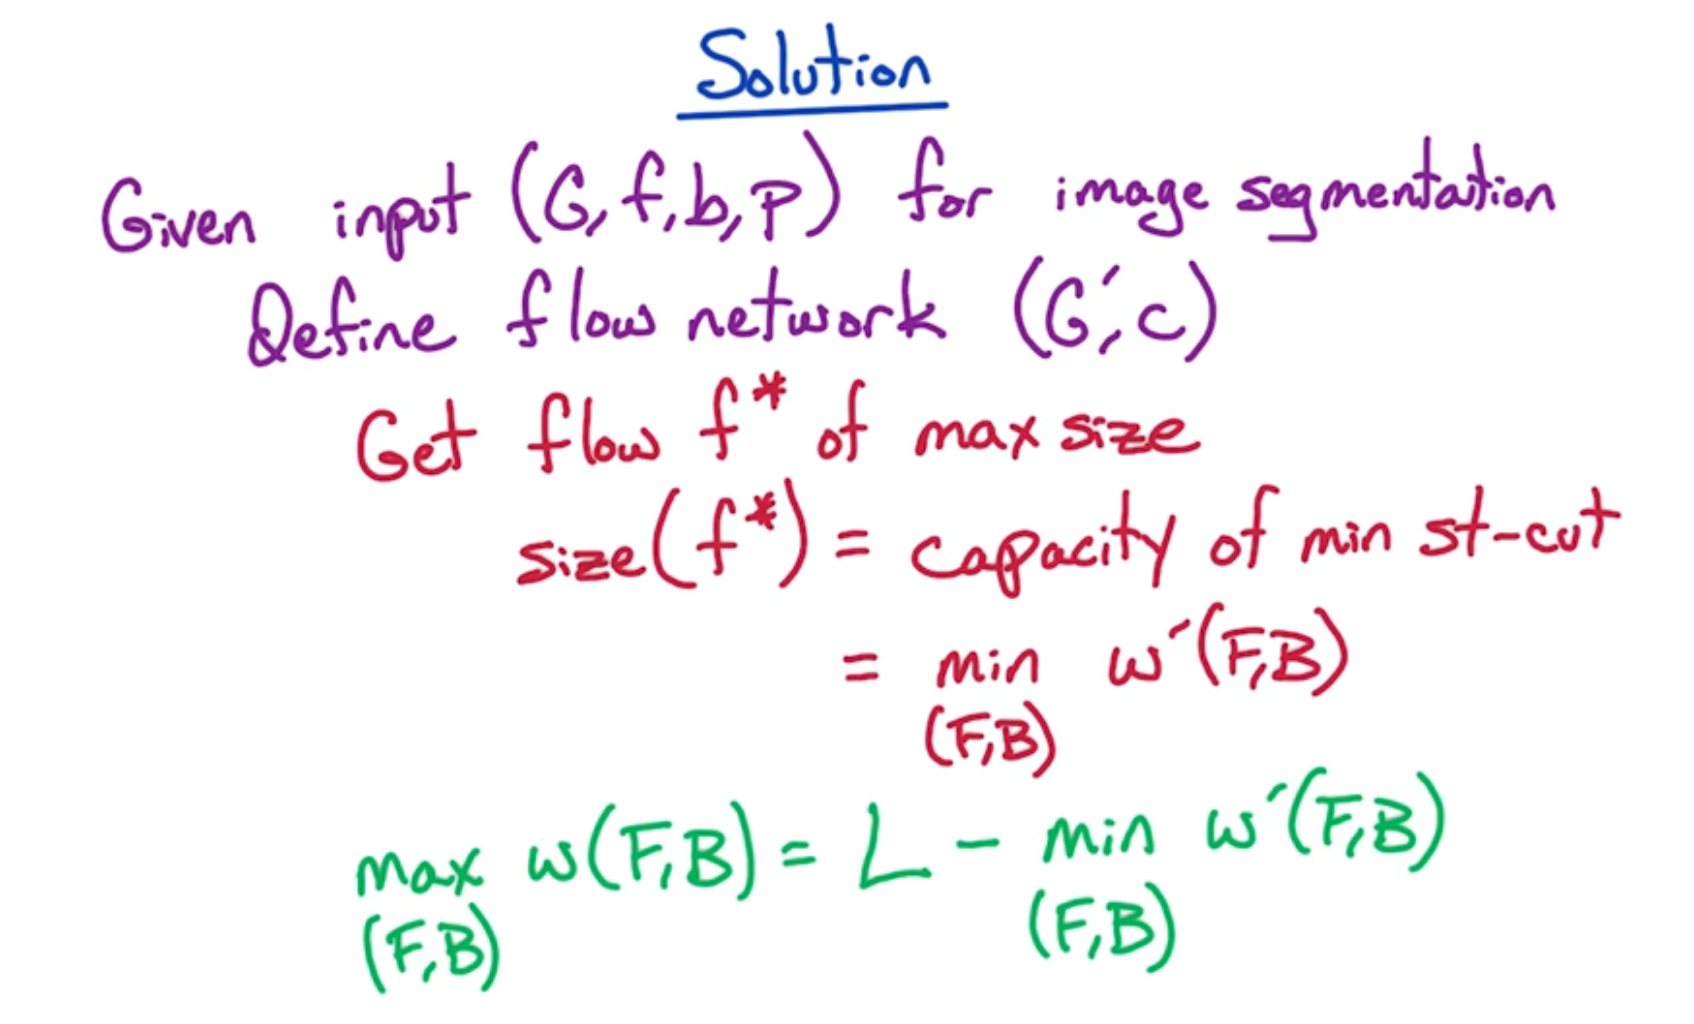 Solution
Given input (G,f,b,p) for image segmentation
Define flow network (G′,c)
Get flow f* of max size
size(f*) = capacity of min st-cut
= min w′(F,B)
(F,B)
max w(F,B) = L - min w′(F,B)
(F,B) (F,B)